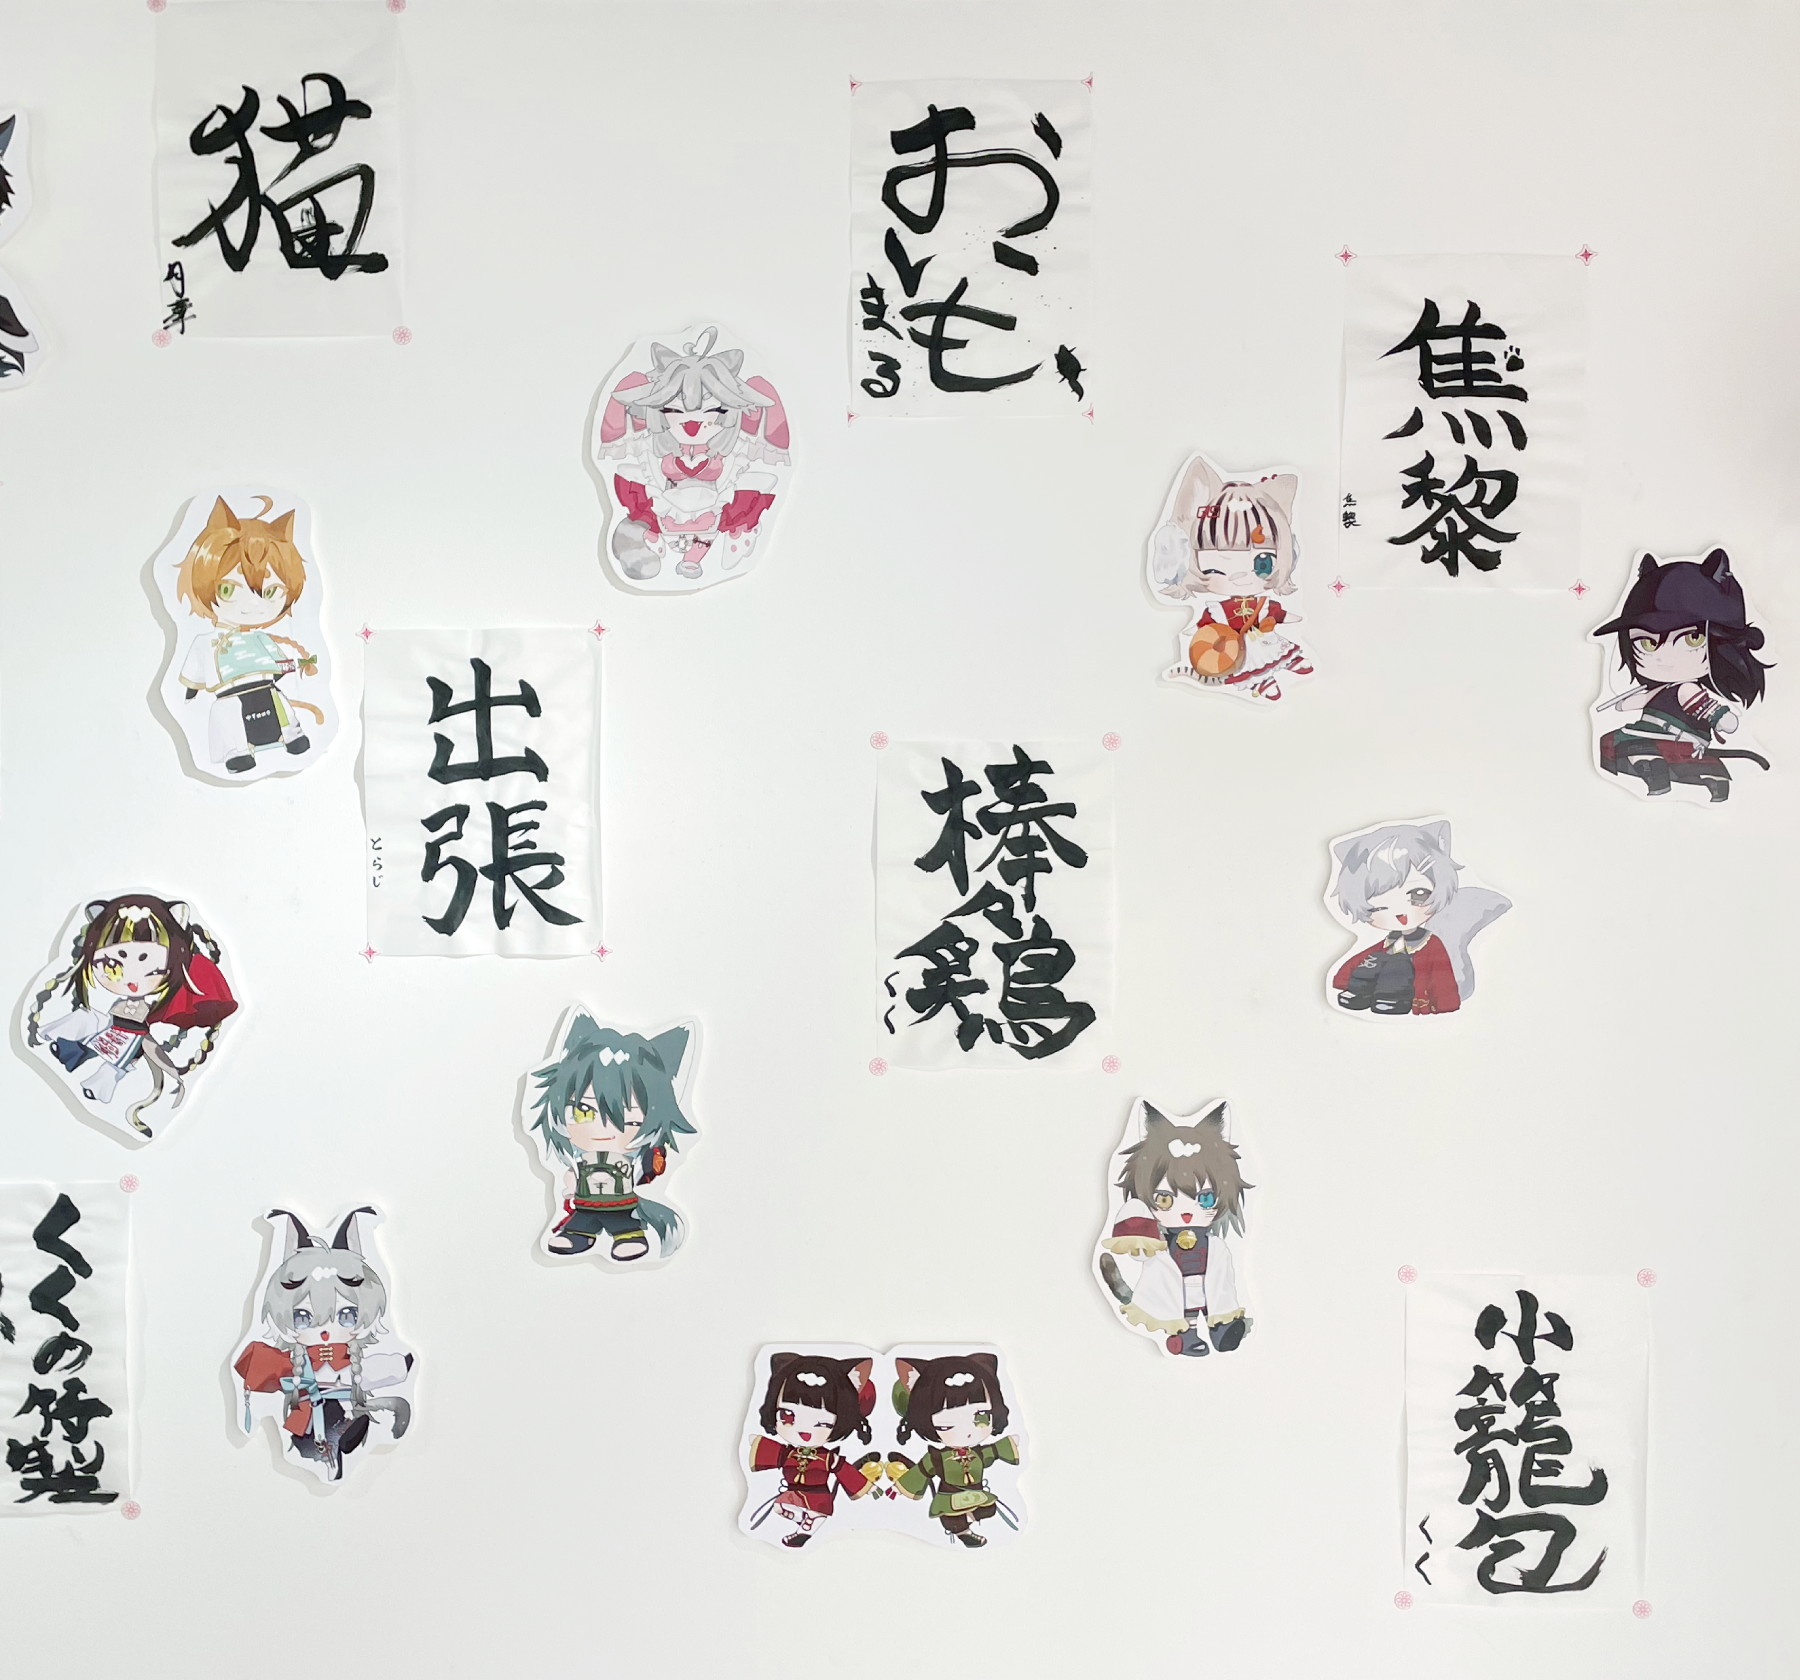 猫
月幸
おいも
まる
焦黎
焦黎
出張
とらじ
棒々鶏
くく
くくの符製
小籠包
くく